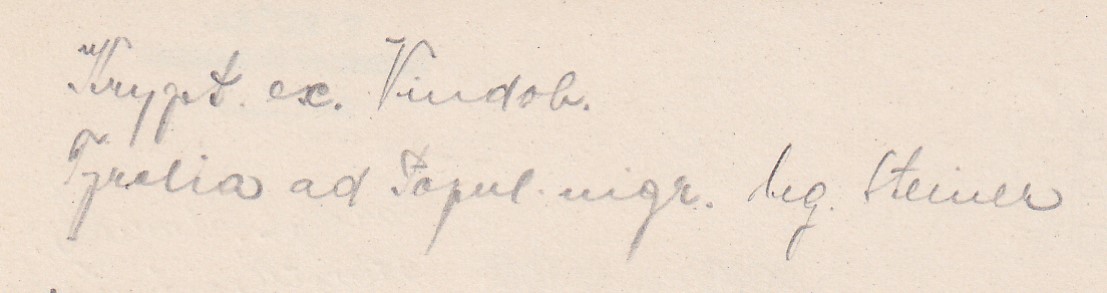 Krypt. ex. Vindob.
Tyrolia ad Popul. nigr. leg. Steiner